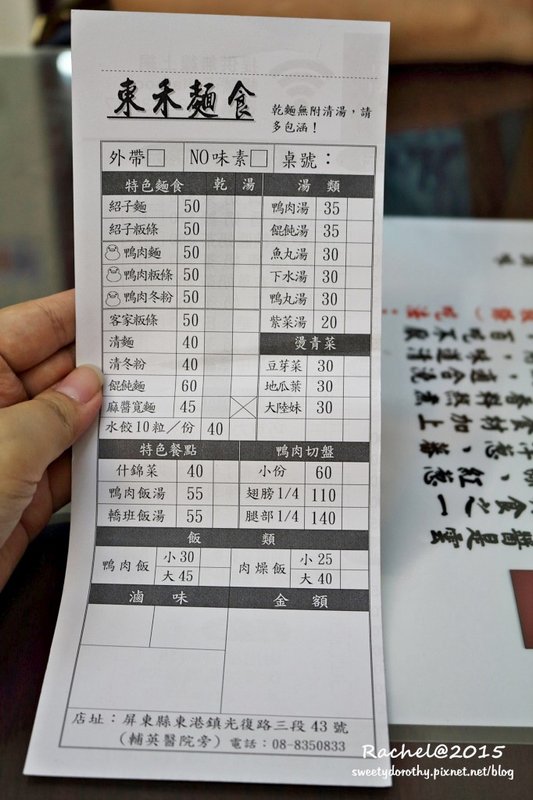 東禾麵食
乾麵無附清湯，請
多包涵！
外帶□ NO味素□ 桌號：
特色麵食 乾 湯
紹子麵 50
紹子粄條 50
鴨肉麵 50
鴨肉粄條 50
鴨肉冬粉 50
客家粄條 50
清麵 40
清冬粉 40
餛飩麵 60
麻醬寬麵 45
水餃10粒／份 40
湯 類
鴨肉湯 35
餛飩湯 35
魚丸湯 30
下水湯 30
鴨丸湯 30
紫菜湯 20
燙青菜
豆芽菜 30
地瓜葉 30
大陸妹 30
特色餐點
什錦菜 40
鴨肉飯湯 55
轎班飯湯 55
鴨肉切盤
小份 60
翅膀1/4 110
腿部1/4 140
飯 類
鴨肉飯 小30
大45
肉燥飯 小25
大40
滷 味 金 額
店址：屏東縣東港鎮光復路三段43號
（輔英醫院旁）電話：08-8350833
Rachel@2015
sweetydorothy.pixnet.net/blog